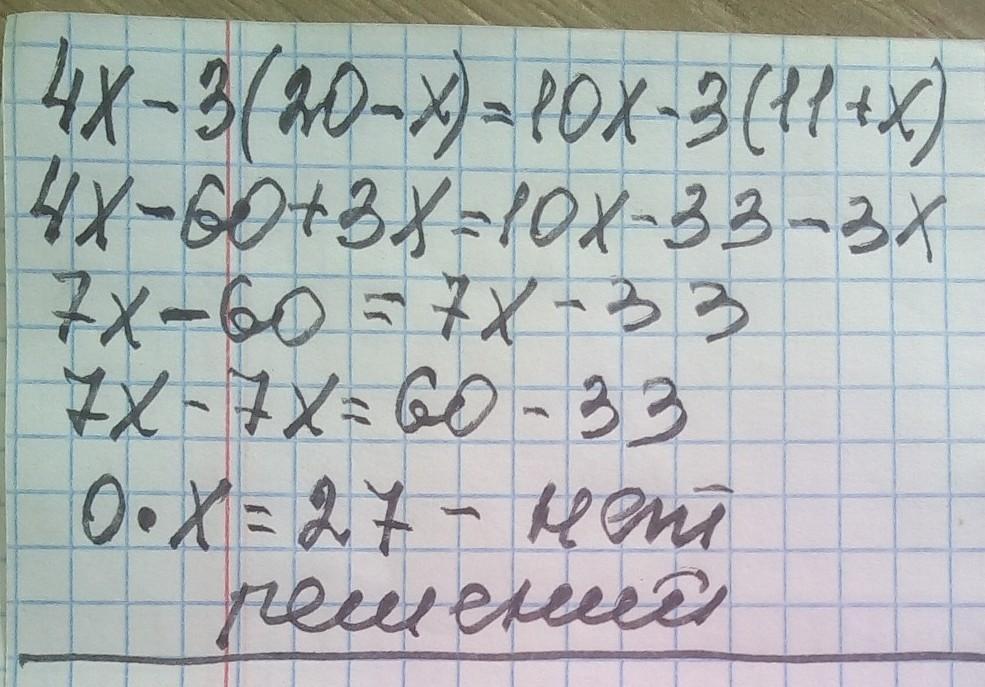 4x-3(20-x)=10x-3(11+x)
4x-60+3x=10x-33-3x
7x-60=7x-33
7x-7x=60-33
0·x=27- нет
решений